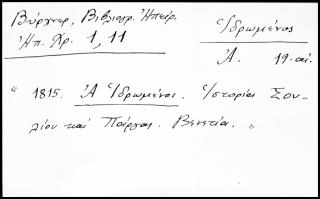 Βύρχνερ, Βιβλιογρ. Ἠπείρ.
Ἠπ. Χρ. 1, 11
Ἱδρωμένος
Ἀ. 19. αἰ.
" 1815. Ἀ Ἱδρωμένος. Ἱστορίαι Σου-
λίου καὶ Πάργας. Βενετία. "